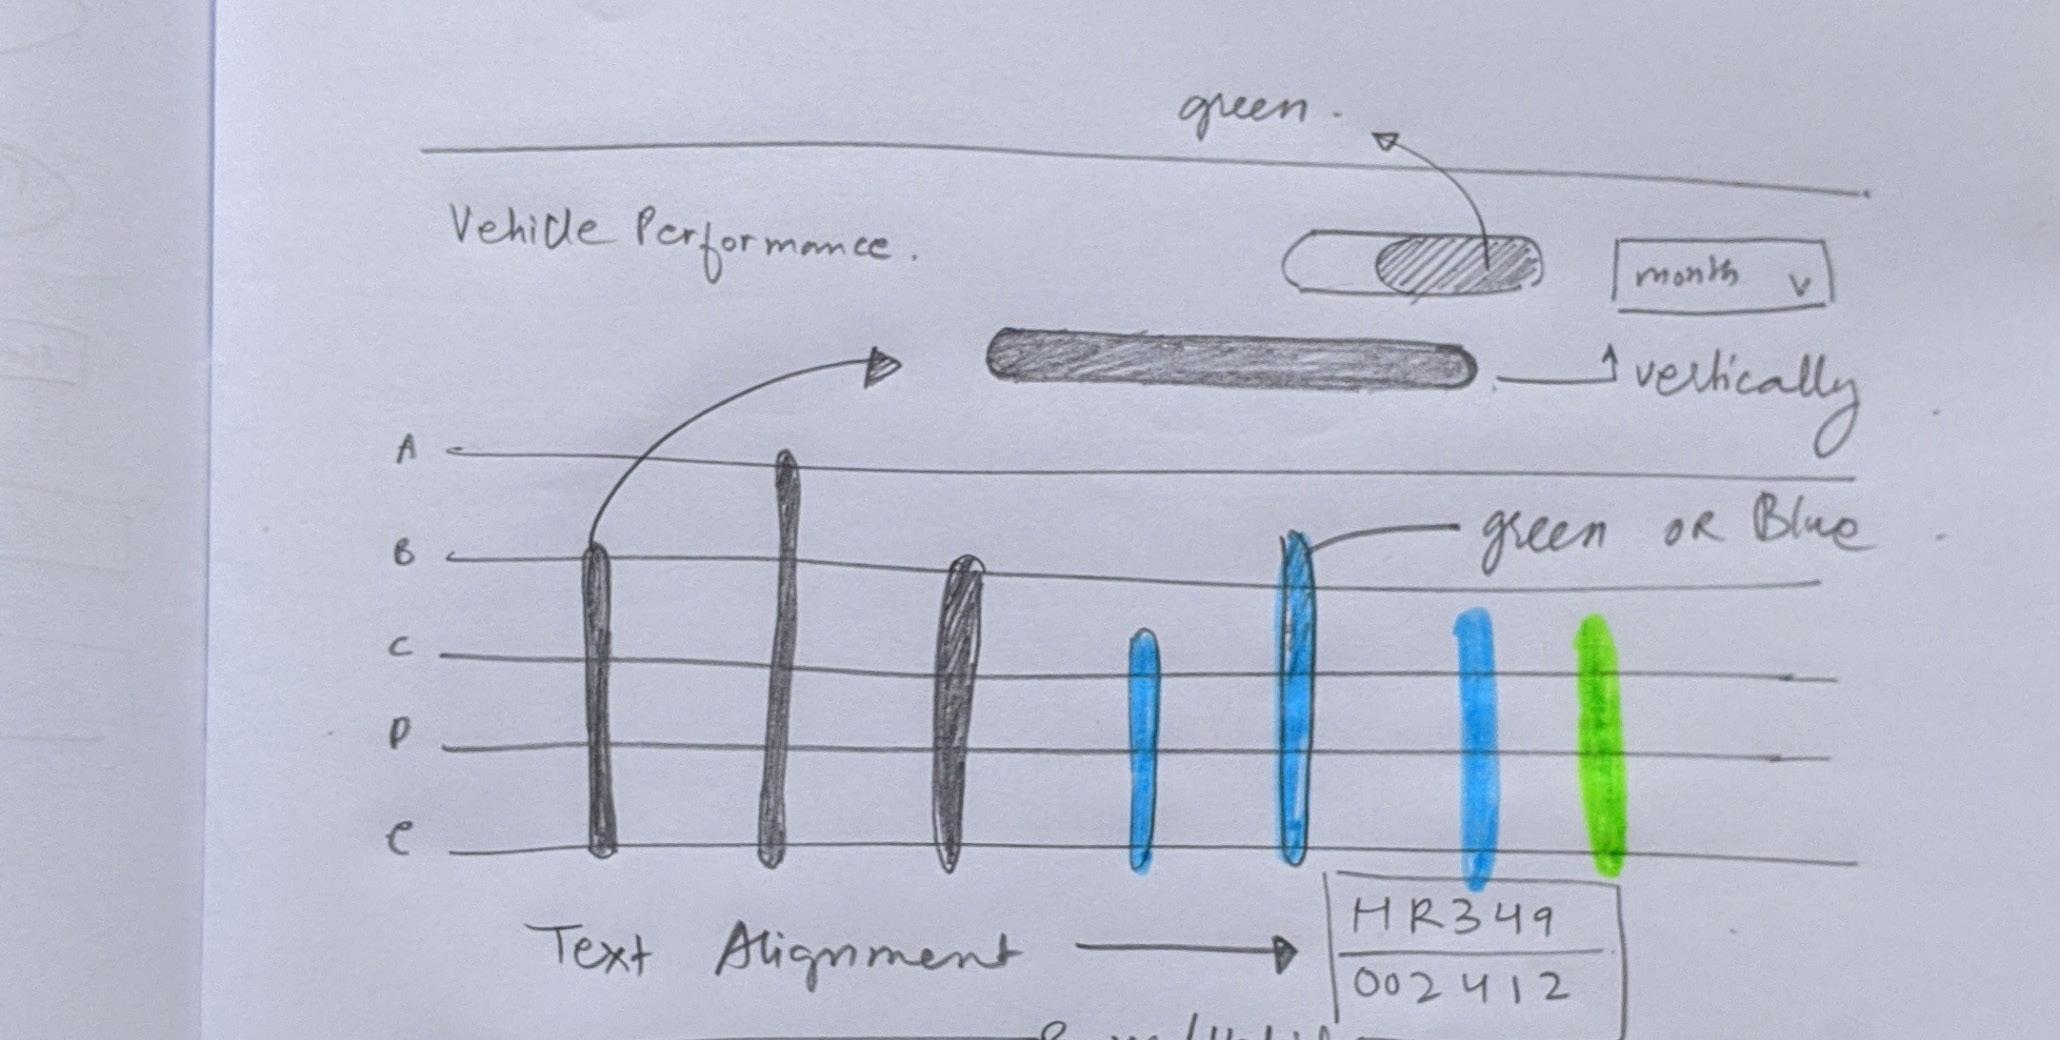 green.
Vehicle Performance.
month v
vertically
A
B
green OR Blue
C
D
e
Text Alignment
HR349
002412